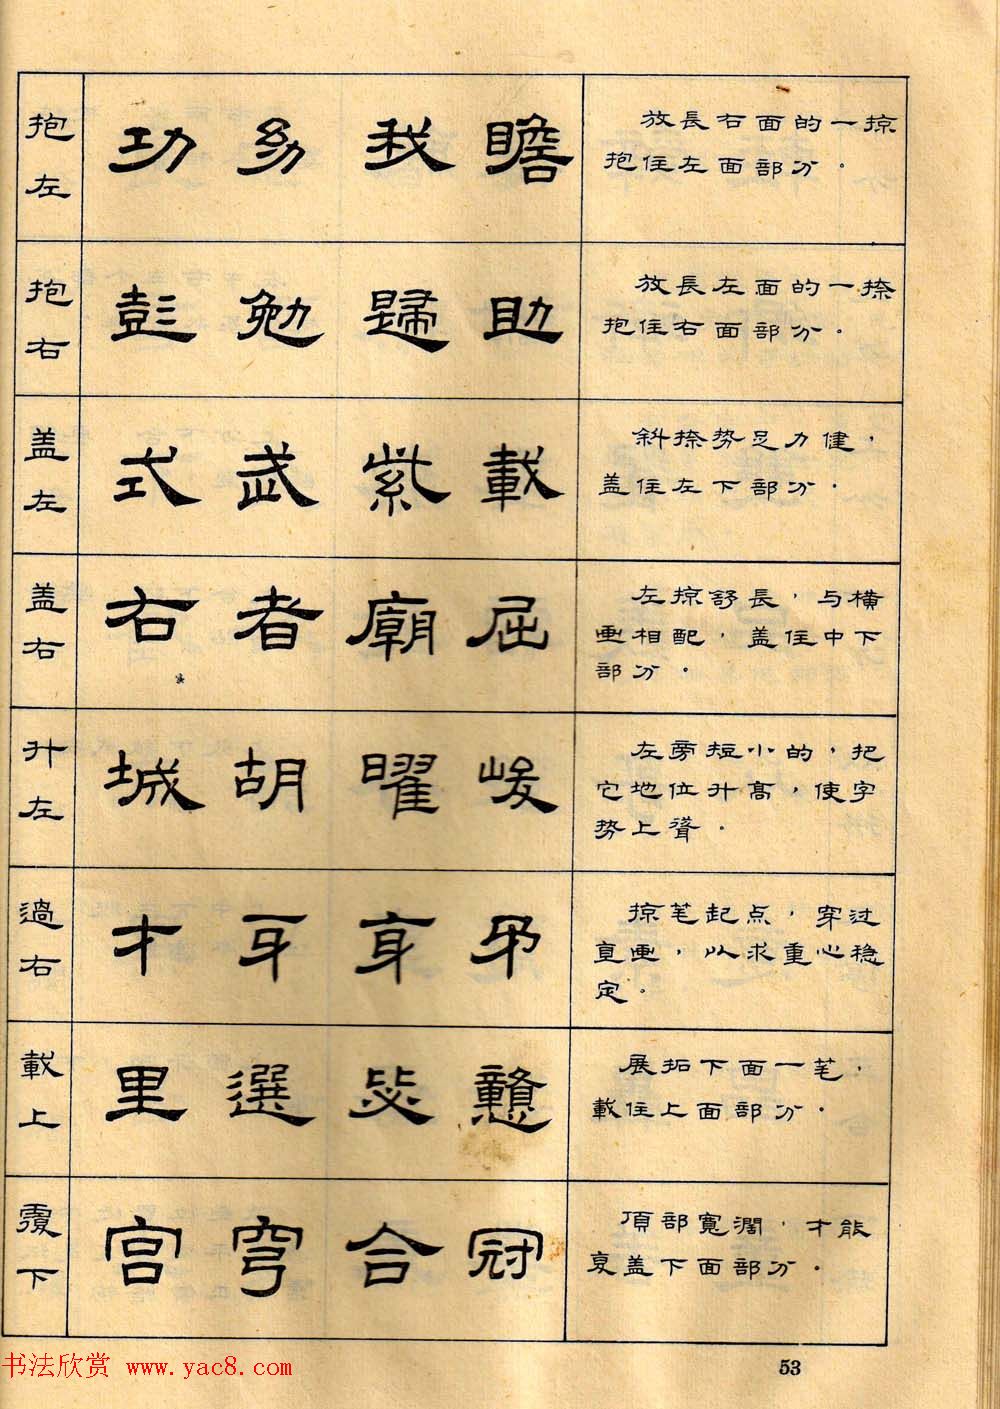 抱左
功 幼 我 瞻
放長右面的一掠
抱住左面部分。
抱右
彭 勉 歸 助
放長左面的一捺
抱住右面部分。
盖左
式 武 紫 載
斜捺势足力健，
盖住左下部分。
盖右
右 者 廟 屈
左掠舒長，与横
画相配，盖住中下
部分。
升左
城 胡 曜 峻
左旁短小的，把
它地位升高，使字
势上聳。
過右
才 牙 穿
掠笔起点，穿过
直画，以求重心稳
定。
載上
里 選 毖 戆
展拓下面一笔，
載住上面部分。
覆下
宫 穹 合 冠
頂部寬濶，才能
夏盖下面部分。
书法欣赏 www.yac8.com
53